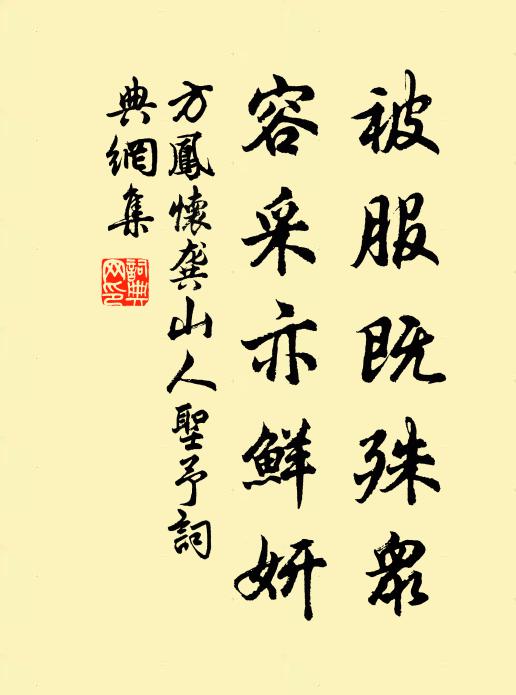 被服既殊衆
容采亦鮮妍
方鳳懷龔山人聖予詞
典網集
詞典
网印